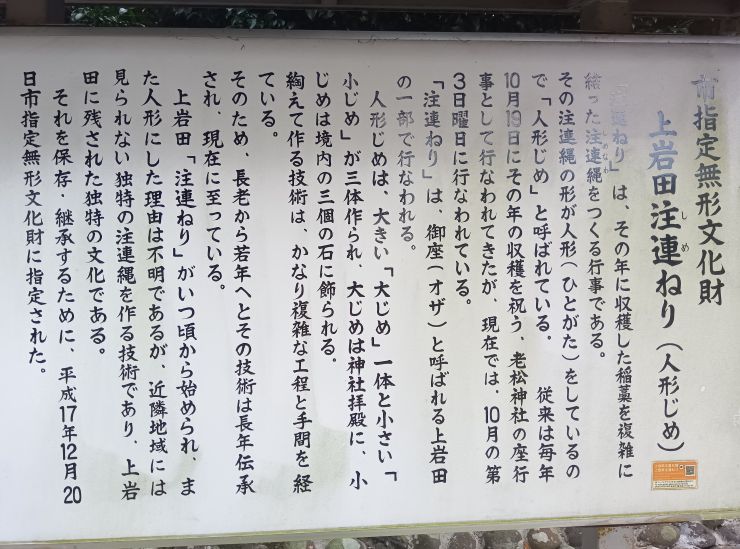 市指定無形文化財
上岩田注連ねり（人形じめ）
しめ
「注連ねり」は、その年に収穫した稲藁を複雑に
綯った注連縄をつくる行事である。
めなわ
その注連縄の形が人形（ひとがた）をしているの
で「人形じめ」と呼ばれている。　従来は毎年
10月19日にその年の収穫を祝う、老松神社の座行
事として行なわれてきたが、現在では、10月の第
3日曜日に行なわれている。
「注連ねり」は、御座（オザ）と呼ばれる上岩田
の一部で行なわれる。
人形じめは、大きい「大じめ」一体と小さい「
小じめ」が三体作られ、大じめは神社拝殿に、小
じめは境内の三個の石に飾られる。
綯えて作る技術は、かなり複雑な工程と手間を経
ている。
そのため、長老から若年へとその技術は長年伝承
され、現在に至っている。
上岩田「注連ねり」がいつ頃から始められ、ま
た人形にした理由は不明であるが、近隣地域には
見られない独特の注連縄を作る技術であり、上岩
田に残された独特の文化である。
それを保存・継承するために、平成17年12月20
日市指定無形文化財に指定された。